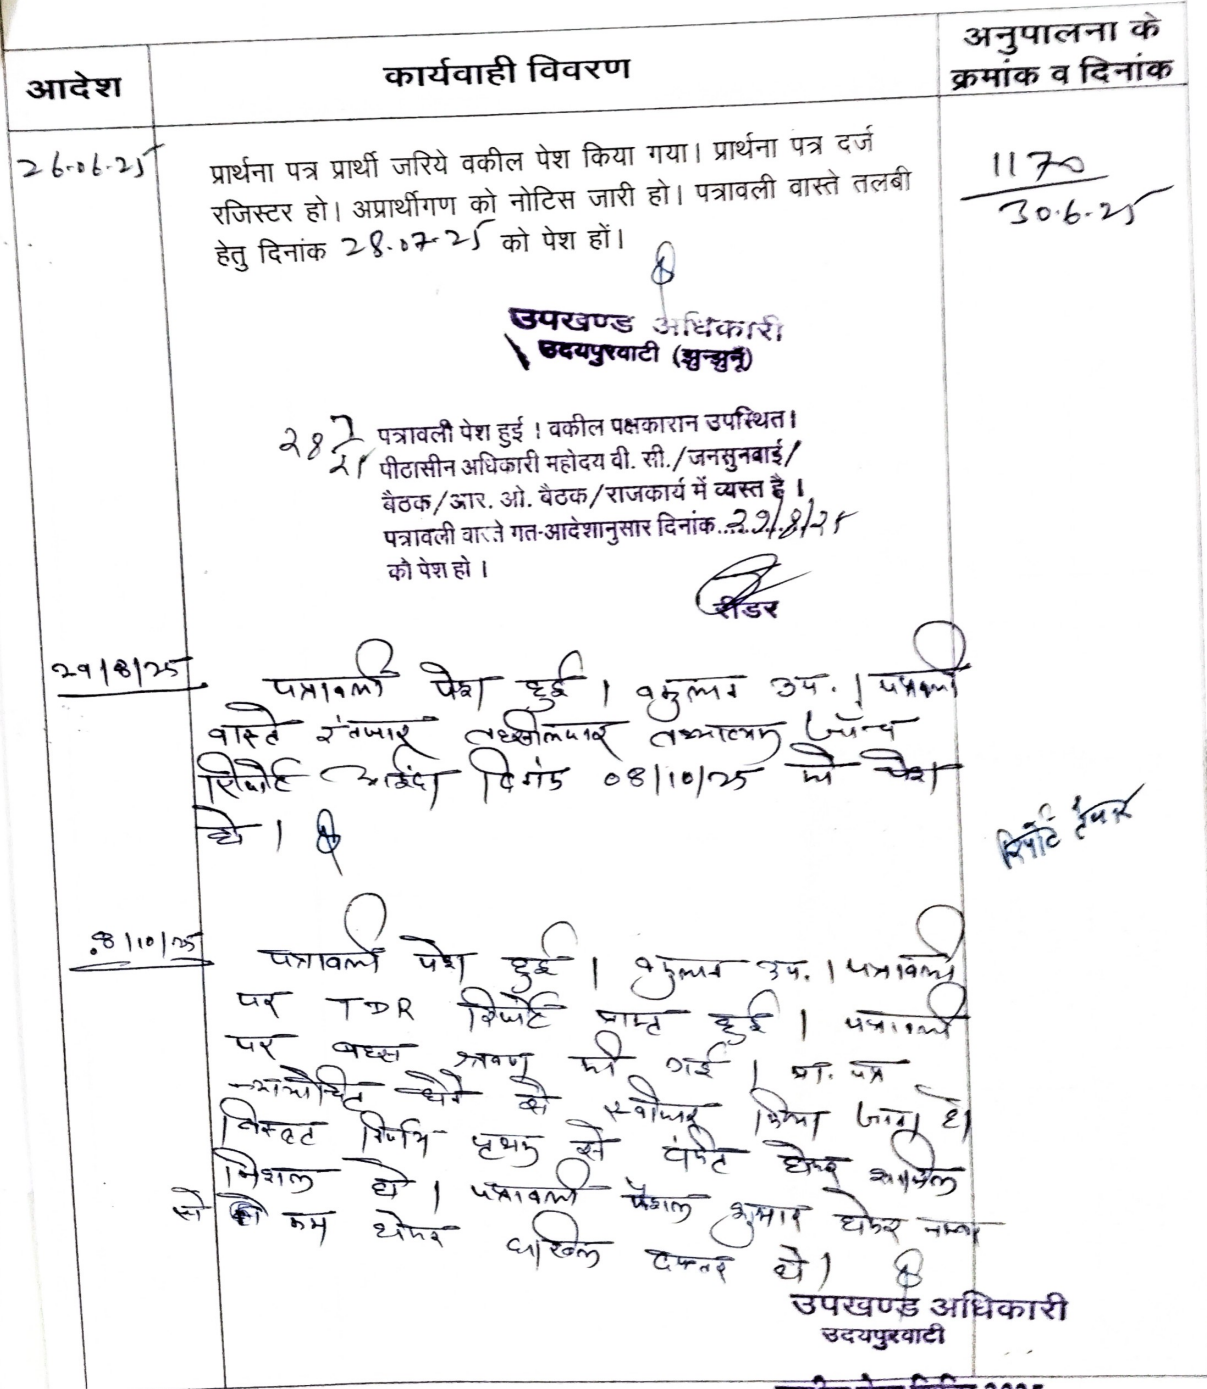 आदेश
कार्यवाही विवरण
अनुपालना के
क्रमांक व दिनांक
26.06.25
प्रार्थना पत्र प्रार्थी जरिये वकील पेश किया गया। प्रार्थना पत्र दर्ज
रजिस्टर हो। अप्रार्थीगण को नोटिस जारी हो। पत्रावली वास्ते तलबी
हेतु दिनांक 28.07.25 को पेश हों।
1170
30.6.25
उपखण्ड अधिकारी
उदयपुरवाटी (झुन्झुनूँ)
28/7/25
पत्रावली पेश हुई। वकील पक्षकारान उपस्थित।
पीठासीन अधिकारी महोदय वी. सी./जनसुनवाई/
बैठक/आर. ओ. बैठक/राजकार्य में व्यस्त है।
पत्रावली वास्ते गत-आदेशानुसार दिनांक..29/8/25
को पेश हो।
रीडर
29/8/25
पत्रावली पेश हुई। वकुलान उप.। पत्रावली
वास्ते इंतजार तहसीलदार तथ्यात्मक जाँच
रिपोर्ट आईंदा दिनांक 08/10/25 को पेश
हो।
रिपोर्ट तैयार
8/10/25
पत्रावली पेश हुई। वकुलान उप.। पत्रावली
पर TDR रिपोर्ट प्राप्त हुई। पत्रावली
पर बहस श्रवण की गई। प्रा. पत्र
न्यायोचित होने से स्वीकार किया जाता है।
विस्तृत निर्णय पृथक से टंकित होकर शामिल
मिशल हो। पत्रावली फैशल शुमार होकर नम्बर
से कम होकर दाखिल दफ्तर हो।
उपखण्ड अधिकारी
उदयपुरवाटी